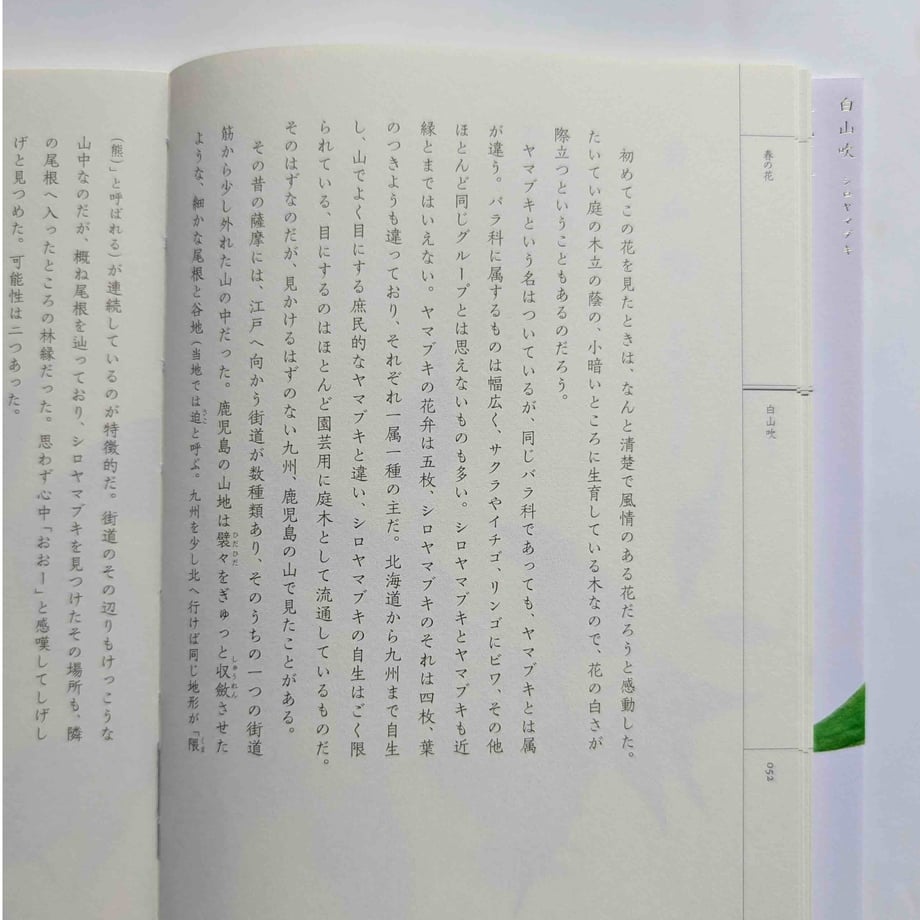 白山吹 シロヤマブキ
春の花
白山吹
052
初めてこの花を見たときは、なんと清楚で風情のある花だろうと感動した。
たいてい庭の木立の蔭の、小暗いところに生育している木なので、花の白さが
際立つということもあるのだろう。
ヤマブキという名はついているが、同じバラ科であっても、ヤマブキとは属
が違う。バラ科に属するものは幅広く、サクラやイチゴ、リンゴにビワ、その他
ほとんど同じグループとは思えないものも多い。シロヤマブキとヤマブキも近
縁とまではいえない。ヤマブキの花弁は五枚、シロヤマブキのそれは四枚、葉
のつきようも違っており、それぞれ一属一種の主だ。北海道から九州まで自生
し、山でよく目にする庶民的なヤマブキと違い、シロヤマブキの自生はごく限
られている、目にするのはほとんど園芸用に庭木として流通しているものだ。
そのはずなのだが、見かけるはずのない九州、鹿児島の山で見たことがある。
その昔の薩摩には、江戸へ向かう街道が数種類あり、そのうちの一つの街道
筋から少し外れた山の中だった。鹿児島の山地は襞々をぎゅっと収斂させた
ような、細かな尾根と谷地(当地では迫と呼ぶ。九州を少し北へ行けば同じ地形が「隈
(熊)」と呼ばれる)が連続しているのが特徴的だ。街道のその辺りもけっこうな
山中なのだが、概ね尾根を辿っており、シロヤマブキを見つけたその場所も、隣
の尾根へ入ったところの林縁だった。思わず心中「おおー」と感嘆してしげし
げと見つめた。可能性は二つあった。